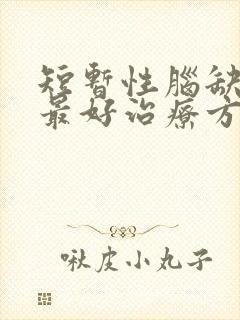 短暫性腦缺
最好治療方
啾皮小丸子